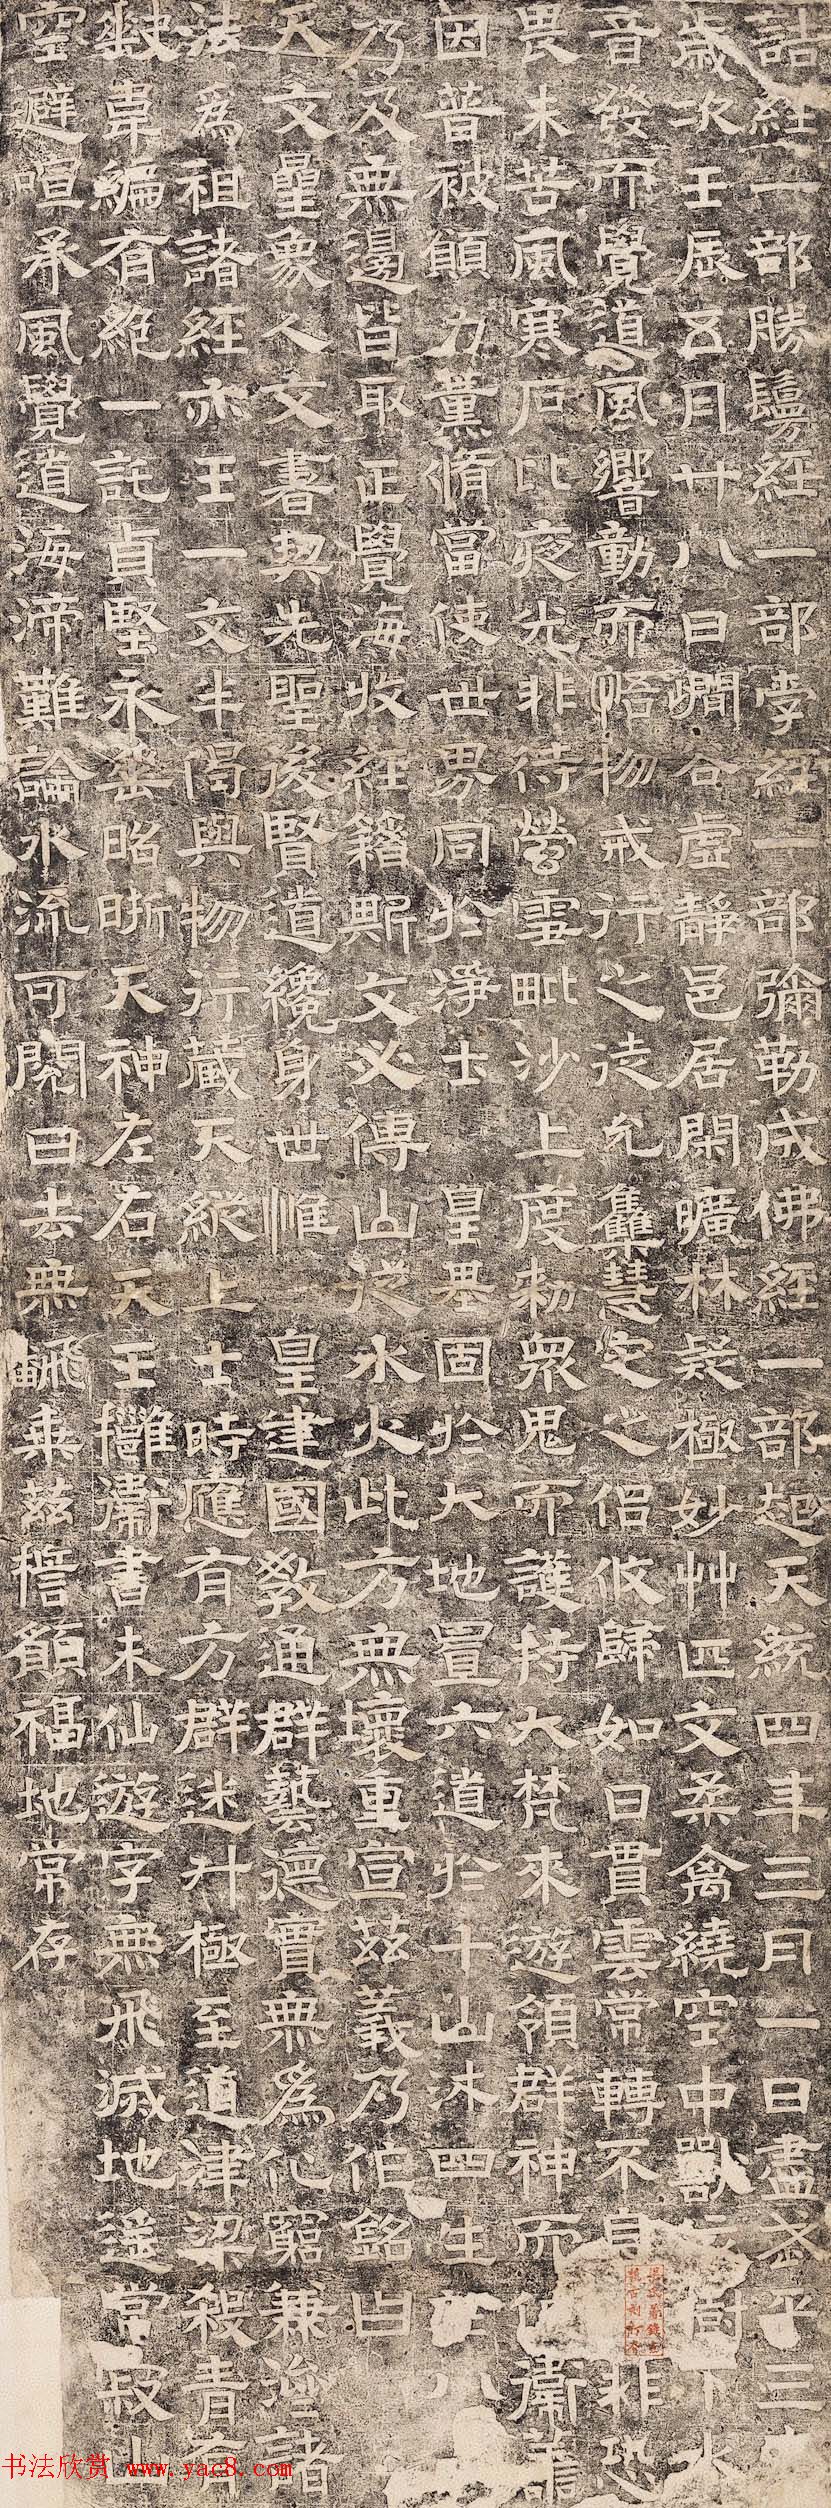 詰經一部勝鬘經一部孛經一部彌勒成佛經一部起天統四年三月一日盡武平三
歲次壬辰五月廿八日㵎谷虛靜邑居閑曠林疑極妙草匹文柔禽繞空中獸依樹下水
音發而覺道風響動而悟物戒行之徒允集慧定之侶攸歸如日貫雲常轉不息非恐
畏未苦風寒石比夜光非待螢雪毗沙上度勑眾鬼而護持大梵來遊領群神而侍衛
因普被願力薰脩當使世界同於淨土 皇基固於大地置六道於十山沐四生於八
乃及無邊皆取正覺海收經籍斯文必傳山從水火此方無壞重宣茲義乃作銘曰
天文壘象人文書契先聖後賢道纔身世惟 皇建國教通群藝德實無為化窮兼濟諸
法為祖諸經亦王一文半偈與物行藏天縱上士時應有方群迷升極至道津梁殺青有
缺韋編有絕一託貞堅永垂昭晰天神左右天王擁衛書未仙遊字無飛滅地遙常寂山
空避喧承風覺道海渧難論水流可閱日去無飜乘茲誓願福地常存
书法欣赏 www.yac8.com